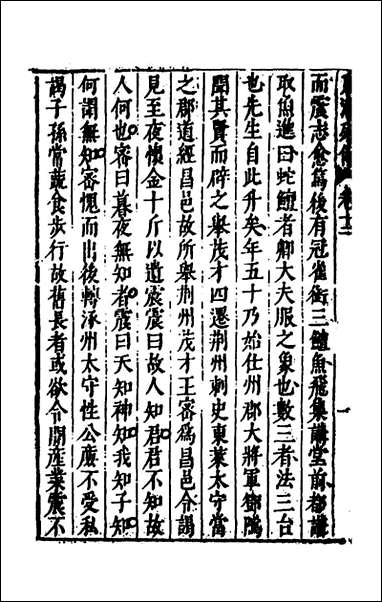 而震志愈篤後有冠雀銜三鱣魚飛集講堂前都講
取魚進曰蛇鱣者卿大夫服之象也數三者法三台
也先生自此升矣年五十乃始仕州郡大將軍鄧隲
聞其賢而辟之舉茂才四遷荆州刺史東萊太守當
之郡道經昌邑故所舉荆州茂才王密爲昌邑令謁
見至夜懷金十斤以遺震震曰故人知君君不知故
人何也密曰暮夜無知者震曰天知神知我知子知
何謂無知密愧而出後轉涿州太守性公廉不受私
謁子孫常蔬食步行故舊長者或欲令開産業震不